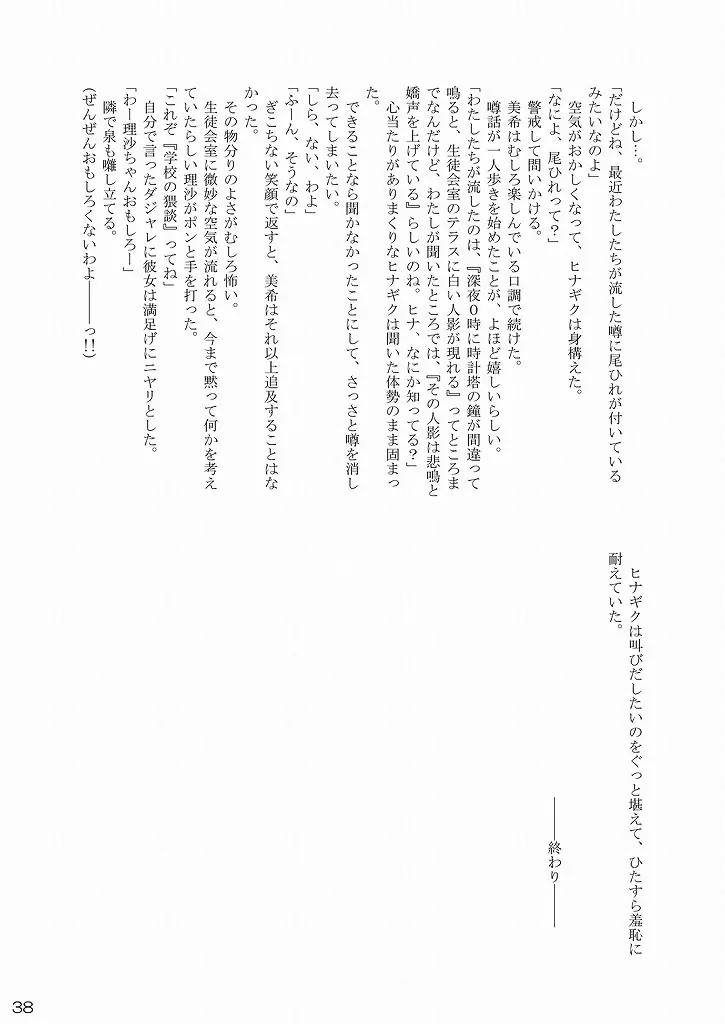 しかし…。
「だけどね、最近わたしたちが流した噂に尾ひれが付いている
みたいなのよ」
空気がおかしくなって、ヒナギクは身構えた。
「なによ、尾ひれって?」
警戒して問いかける。
美希はむしろ楽しんでいる口調で続けた。
噂話が一人歩きを始めたことが、よほど嬉しいらしい。
「わたしたちが流したのは、『深夜0時に時計塔の鐘が間違って
鳴ると、生徒会室のテラスに白い人影が現れる』ってところま
でなんだけど、わたしが聞いたところでは、『その人影は悲鳴と
嬌声を上げている』らしいのね。ヒナ、なにか知ってる?」
心当たりがありまくりなヒナギクは聞いた体勢のまま固まっ
た。
できることなら聞かなかったことにして、さっさと噂を消し
去ってしまいたい。
「しら、ない、わよ」
「ふーん、そうなの」
ぎこちない笑顔で返すと、美希はそれ以上追及することはな
かった。
その物分りのよさがむしろ怖い。
生徒会室に微妙な空気が流れると、今まで黙って何かを考え
ていたらしい理沙がポンと手を打った。
「これぞ『学校の猥談』ってね」
自分で言ったダジャレに彼女は満足げにニヤリとした。
「わー理沙ちゃんおもしろー」
隣で泉も囃し立てる。
(ぜんぜんおもしろくないわよ――――っ!!)
ヒナギクは叫びだしたいのをぐっと堪えて、ひたすら羞恥に
耐えていた。
――――終わり――――
38